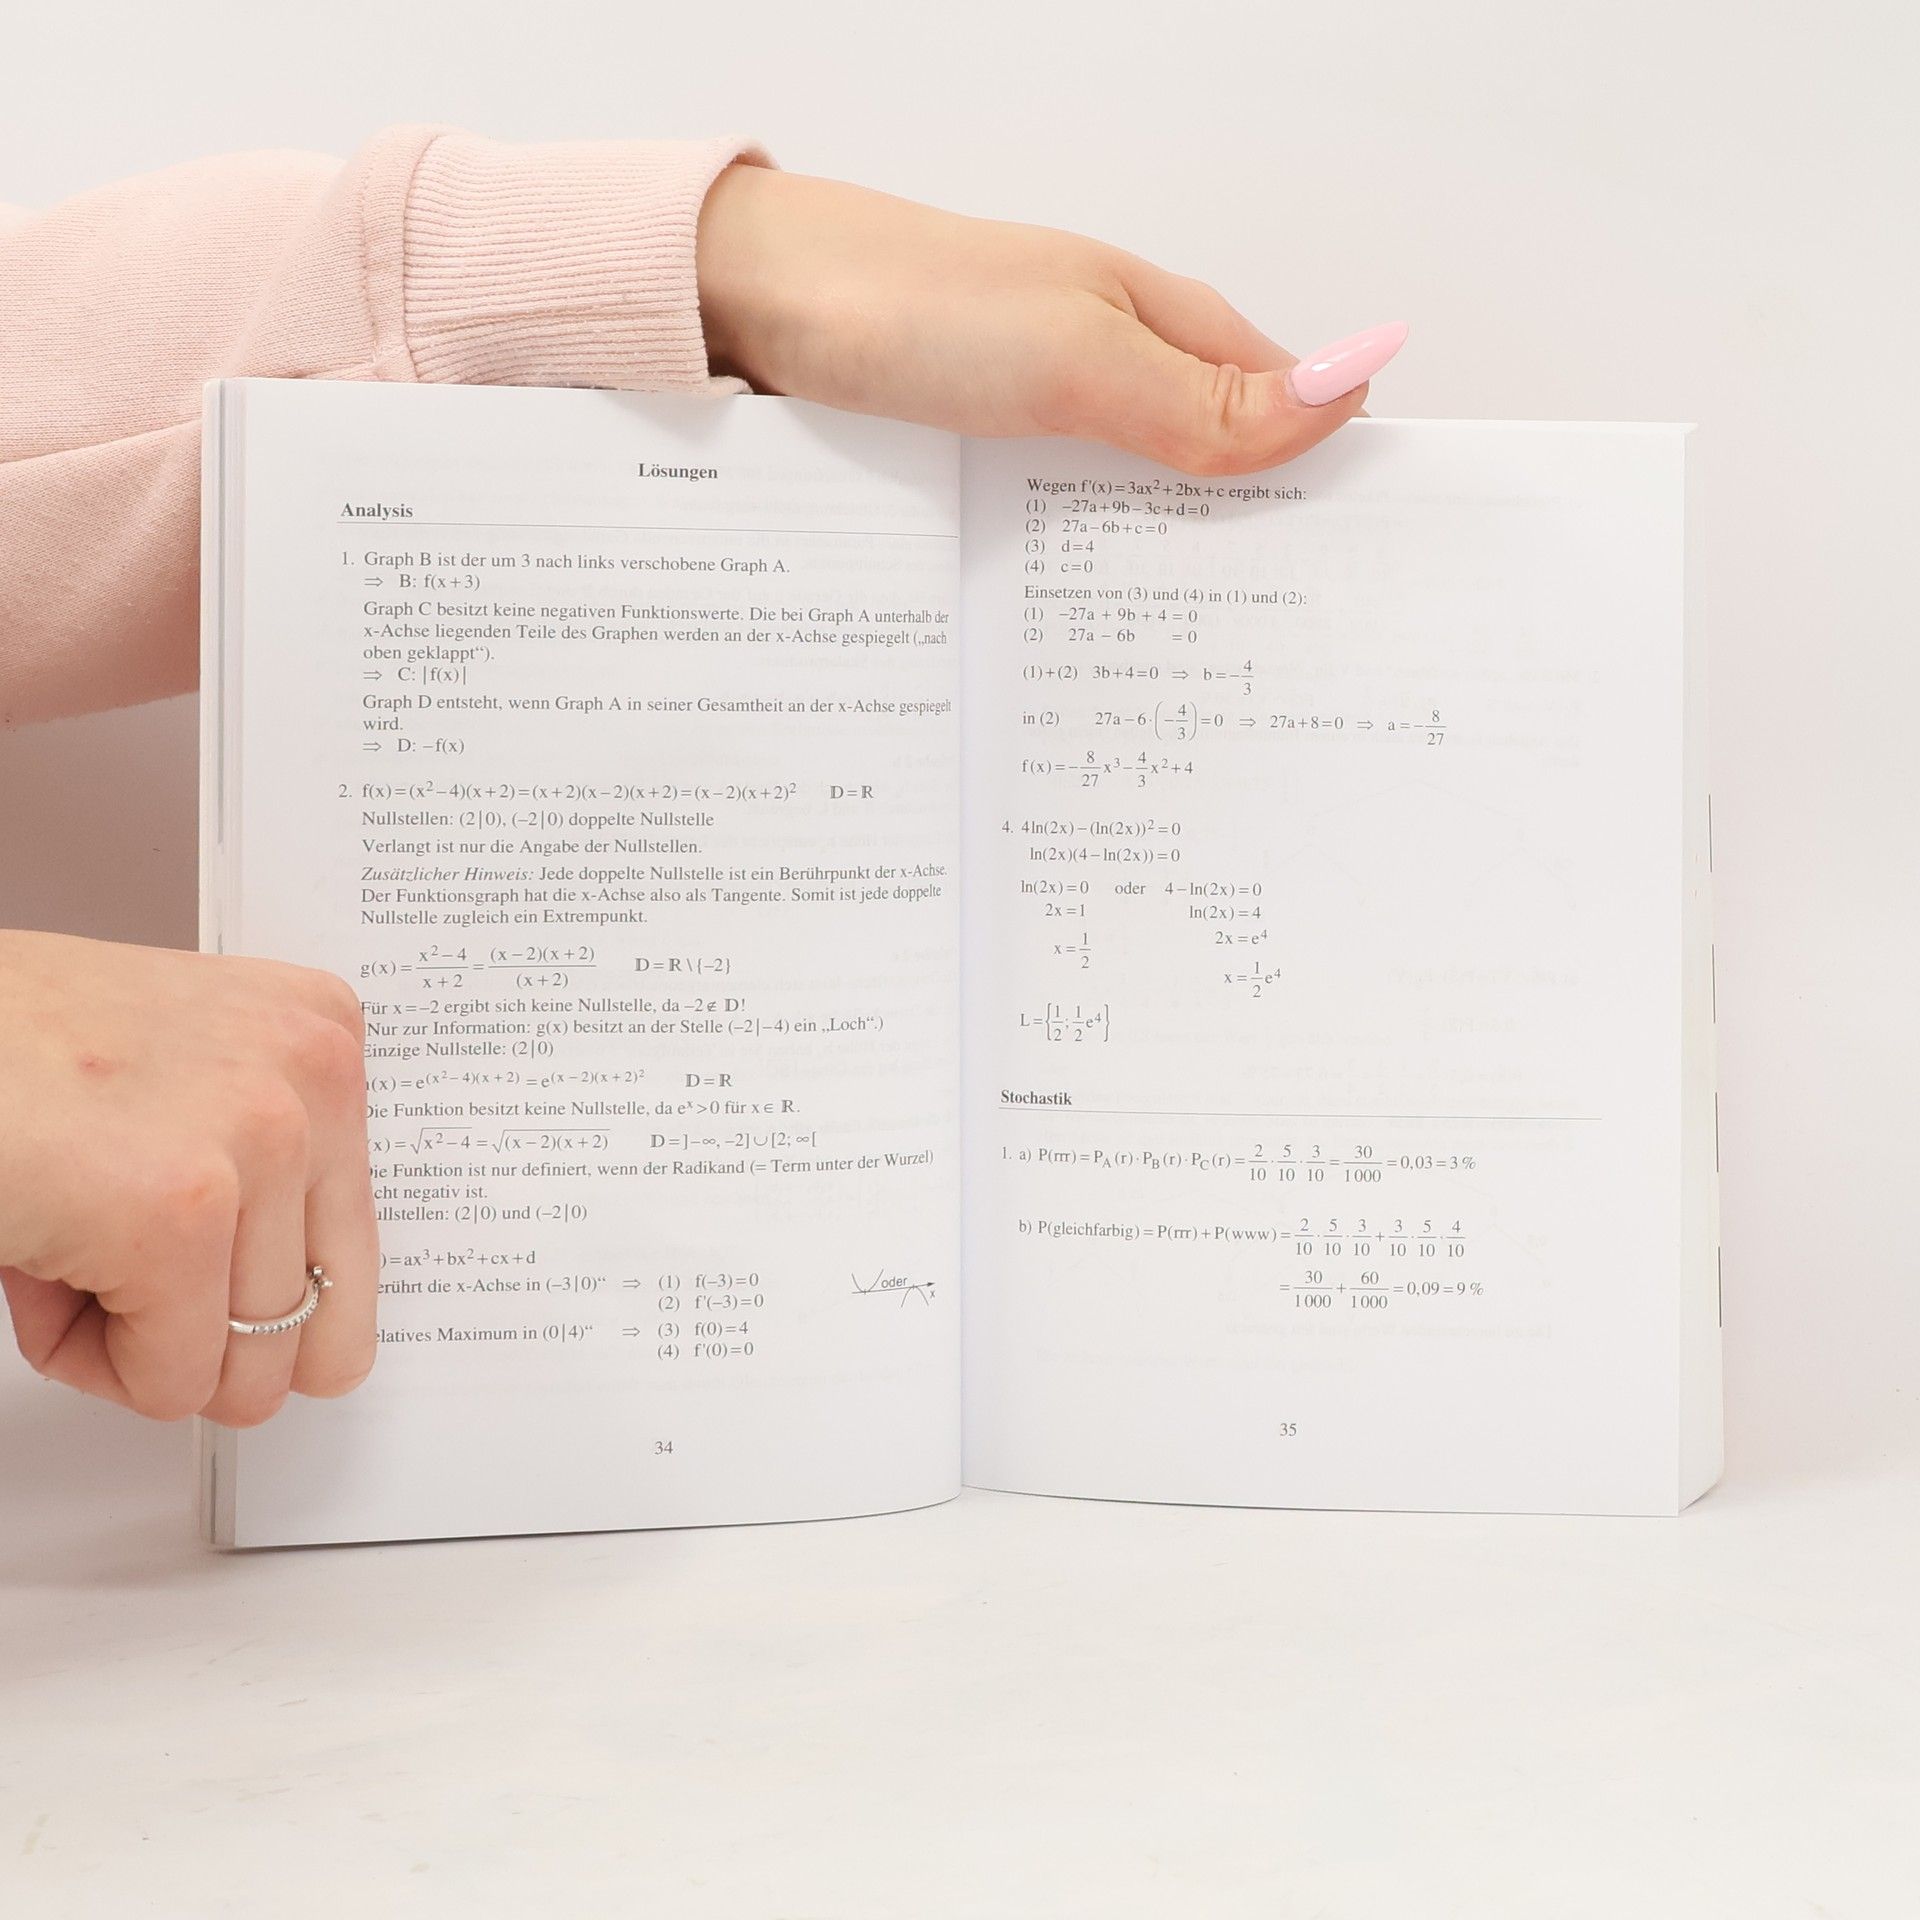 Lösungen
Analysis
1. Graph B ist der um 3 nach links verschobene Graph A.
⇒ B: f(x+3)
Graph C besitzt keine negativen Funktionswerte. Die bei Graph A unterhalb der
x-Achse liegenden Teile des Graphen werden an der x-Achse gespiegelt („nach
oben geklappt“).
⇒ C: |f(x)|
Graph D entsteht, wenn Graph A in seiner Gesamtheit an der x-Achse gespiegelt
wird.
⇒ D: −f(x)
2. f(x)=(x²−4)(x+2)=(x+2)(x−2)(x+2)=(x−2)(x+2)² D=R
Nullstellen: (2|0), (−2|0) doppelte Nullstelle
Verlangt ist nur die Angabe der Nullstellen.
Zusätzlicher Hinweis: Jede doppelte Nullstelle ist ein Berührpunkt der x-Achse.
Der Funktionsgraph hat die x-Achse also als Tangente. Somit ist jede doppelte
Nullstelle zugleich ein Extrempunkt.
g(x)=(x²−4)/(x+2)=((x−2)(x+2))/(x+2) D=R\{−2}
Für x=−2 ergibt sich keine Nullstelle, da −2∉D!
Nur zur Information: g(x) besitzt an der Stelle (−2|−4) ein „Loch“.)
Einzige Nullstelle: (2|0)
(x)=e^((x²−4)(x+2))=e^((x−2)(x+2)²) D=R
Die Funktion besitzt keine Nullstelle, da eˣ>0 für x∈R.
(x)=√(x²−4)=√((x−2)(x+2)) D=]−∞, −2]∪[2; ∞[
ie Funktion ist nur definiert, wenn der Radikand (= Term unter der Wurzel)
cht negativ ist.
ullstellen: (2|0) und (−2|0)
)=ax³+bx²+cx+d
erührt die x-Achse in (−3|0)“ ⇒ (1) f(−3)=0
(2) f'(−3)=0
oder
x
elatives Maximum in (0|4)“ ⇒ (3) f(0)=4
(4) f'(0)=0
34
Wegen f'(x)=3ax²+2bx+c ergibt sich:
(1) −27a+9b−3c+d=0
(2) 27a−6b+c=0
(3) d=4
(4) c=0
Einsetzen von (3) und (4) in (1) und (2):
(1) −27a + 9b + 4 = 0
(2) 27a − 6b = 0
(1)+(2) 3b+4=0 ⇒ b=−4/3
in (2) 27a−6·(−4/3)=0 ⇒ 27a+8=0 ⇒ a=−8/27
f(x)=−8/27x³−4/3x²+4
4. 4ln(2x)−(ln(2x))²=0
ln(2x)(4−ln(2x))=0
ln(2x)=0 oder 4−ln(2x)=0
2x=1 ln(2x)=4
x=1/2 2x=e⁴
x=1/2e⁴
L={1/2; 1/2e⁴}
Stochastik
1. a) P(rrr)=P_A(r)·P_B(r)·P_C(r)=2/10·5/10·3/10=30/1000=0,03=3 %
b) P(gleichfarbig)=P(rrr)+P(www)=2/10·5/10·3/10+3/10·5/10·4/10
=30/1000+60/1000=0,09=9 %
35